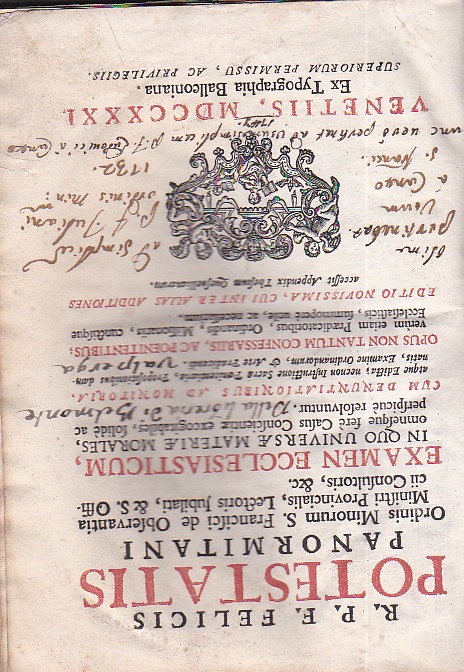 R. P. F. FELICIS
POTESTATIS
PANORMITANI
Ordinis Minorum S. Francisci de Observantia
Ministri Provincialis, Lectoris Jubilati, & S. Offi-
cii Consultoris, &c.
EXAMEN ECCLESIASTICUM,
IN QUO UNIVERSÆ MATERIÆ MORALES,
omnesque ferè Casus Conscientiæ excogitabiles, solidè ac
perspicuè resolvuntur. Della Libreria di Belmonte
CUM DENUNTIATIONIBUS AD MONITORIA,
atque Edicta, necnon instructione Sacræ Pœnitentiariæ, Propositionibus dam-
natis, Examine Ordinandorum, & Arte Prædicandi. Valperga
OPUS NON TANTUM CONFESSARIIS, AC POENITENTIBUS,
verùm etiam Prædicatoribus, Ordinandis, Missionariis, cunctisque
Ecclesiasticis, summopere utile, ac necessarium.
EDITIO NOVISSIMA, CUI INTER ALIAS ADDITIONES
accessit Appendix Thesium Quesnellianarum.
olim
pertinebat
Usum
à Cuneo
S. Franci.
ad Simplicem
P. F. Juliani
ordinis Min.
1732.
nunc verò pertinet ad usum simplicem P. F. Ludovici à Cuneo
VENETIIS, MDCCXXXI.
Ex Typographia Balleoniana.
SUPERIORUM PERMISSU, AC PRIVILEGIIS.